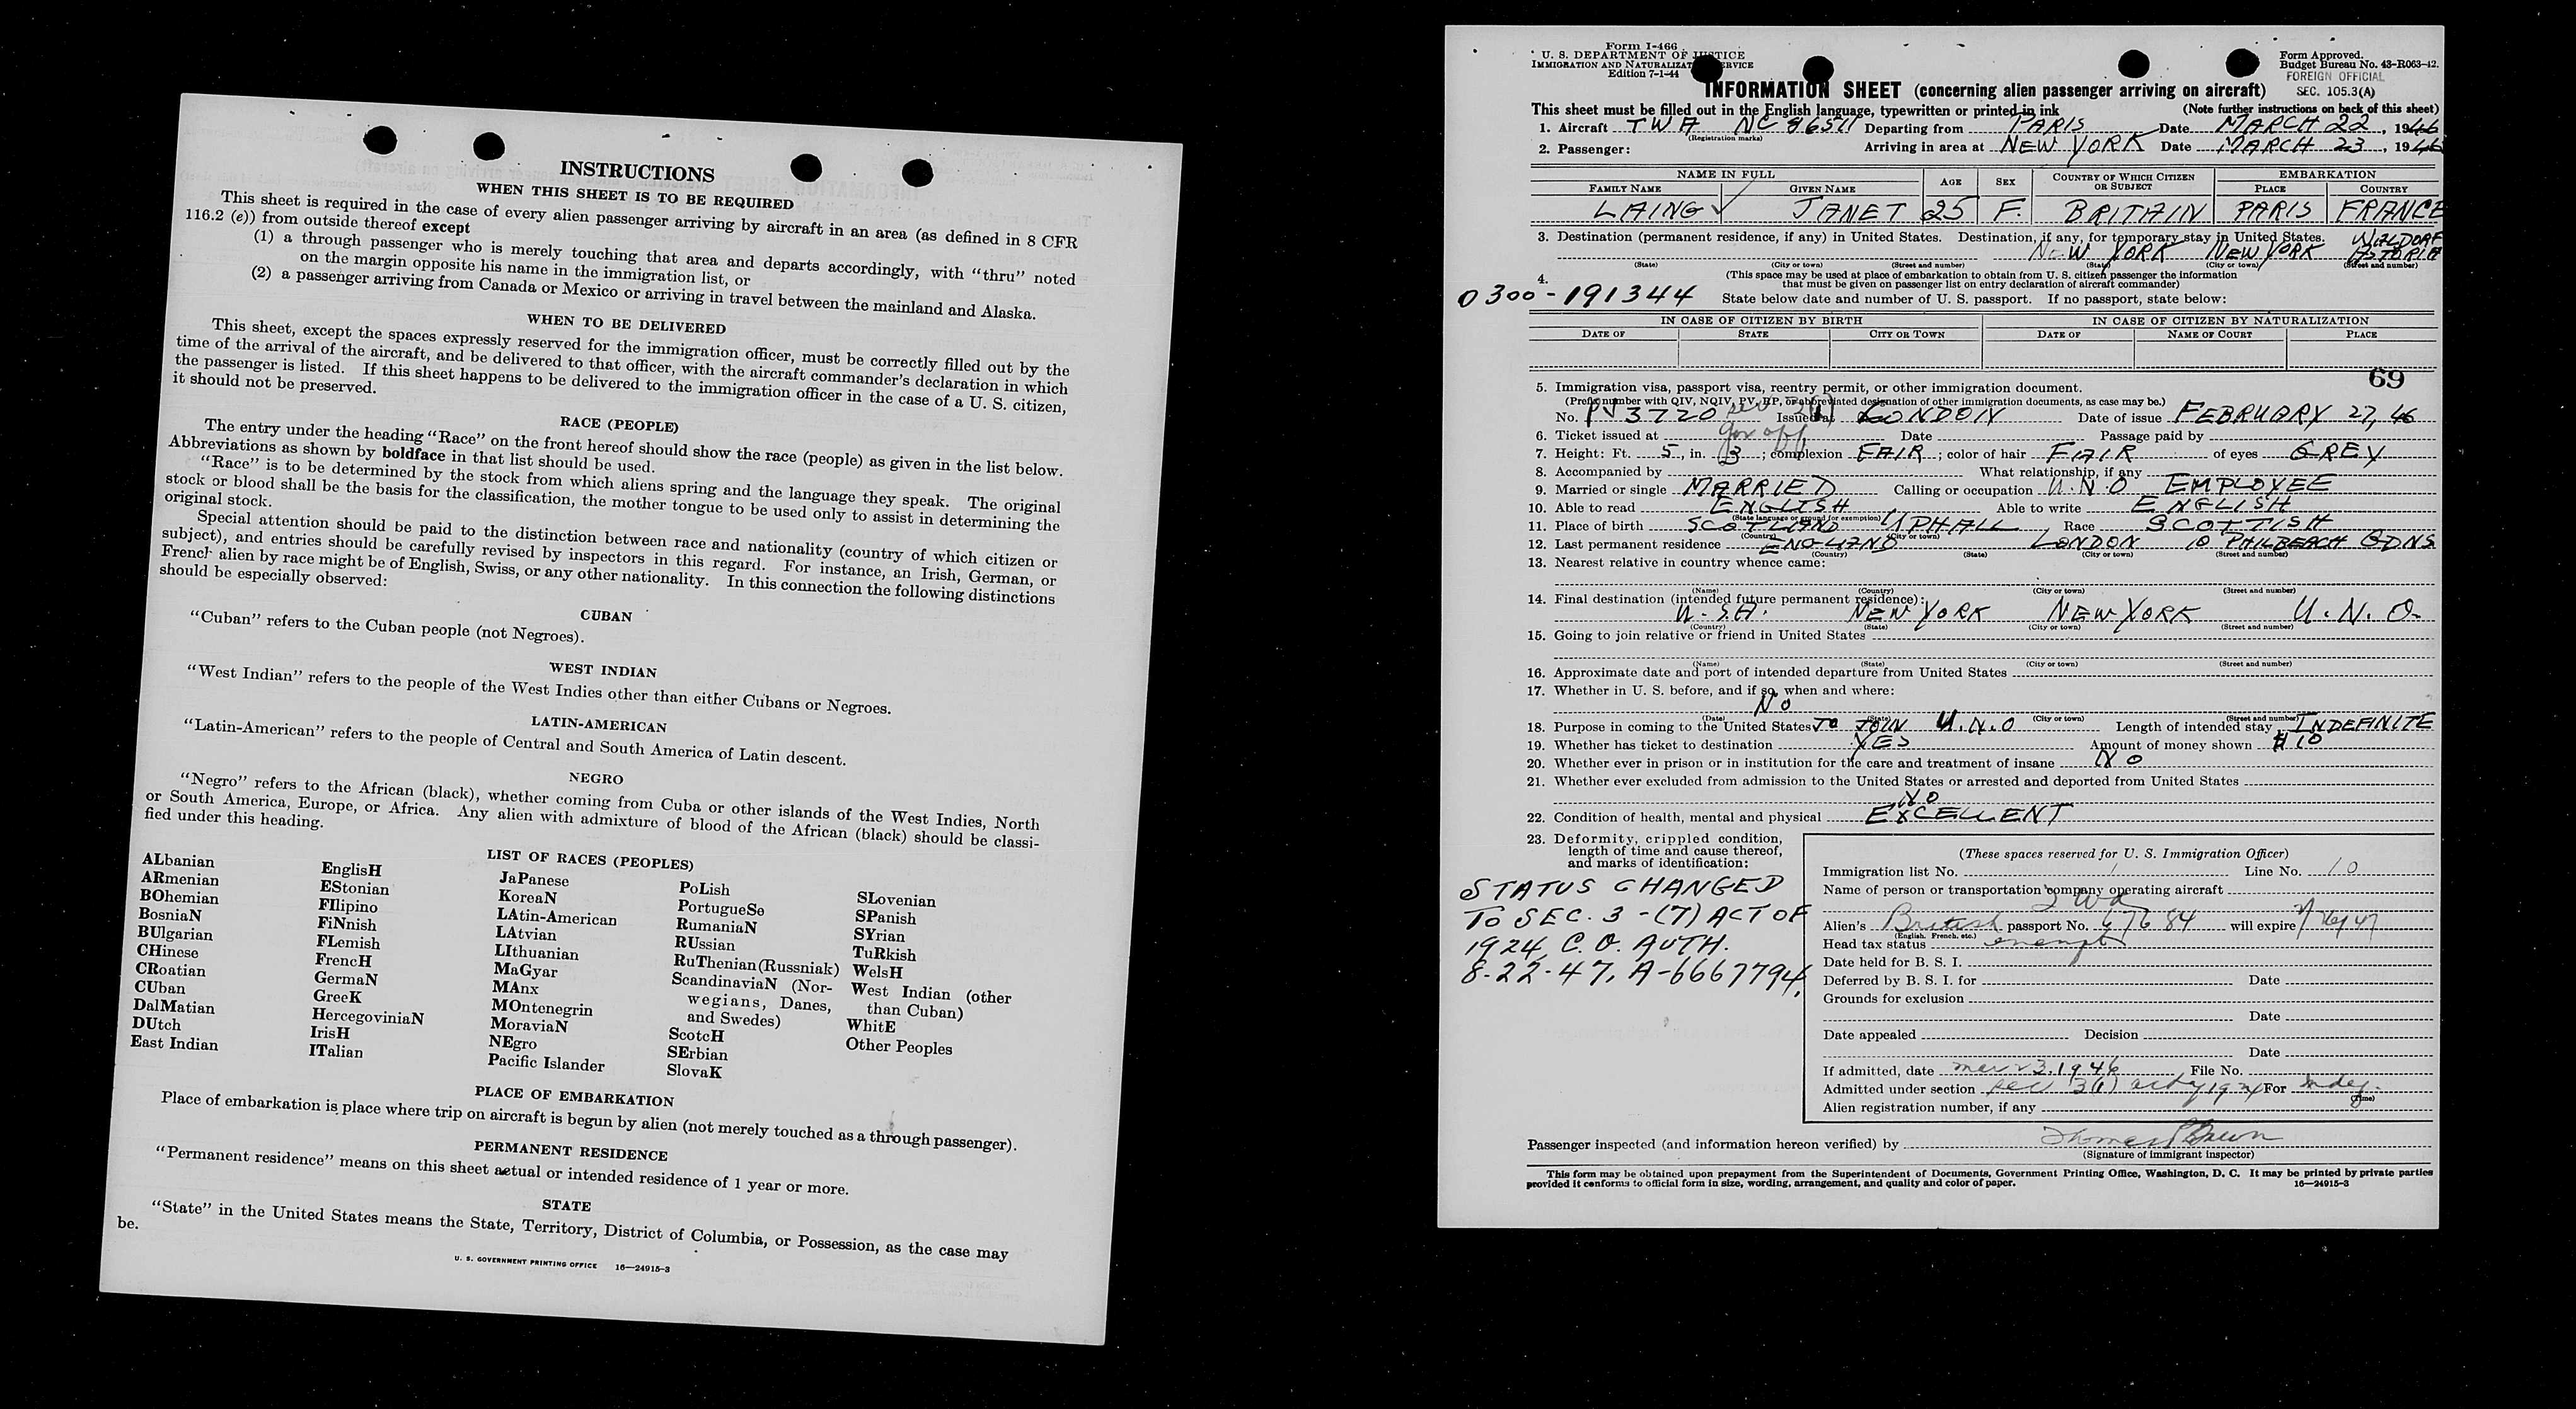 INSTRUCTIONS
WHEN THIS SHEET IS TO BE REQUIRED
This sheet is required in the case of every alien passenger arriving by aircraft in an area (as defined in 8 CFR
116.2 (e)) from outside thereof except
(1) a through passenger who is merely touching that area and departs accordingly, with “thru” noted
on the margin opposite his name in the immigration list, or
(2) a passenger arriving from Canada or Mexico or arriving in travel between the mainland and Alaska.
WHEN TO BE DELIVERED
This sheet, except the spaces expressly reserved for the immigration officer, must be correctly filled out by the
time of the arrival of the aircraft, and be delivered to that officer, with the aircraft commander’s declaration in which
the passenger is listed. If this sheet happens to be delivered to the immigration officer in the case of a U. S. citizen,
it should not be preserved.
RACE (PEOPLE)
The entry under the heading “Race” on the front hereof should show the race (people) as given in the list below.
Abbreviations as shown by boldface in that list should be used.
“Race” is to be determined by the stock from which aliens spring and the language they speak. The original
stock or blood shall be the basis for the classification, the mother tongue to be used only to assist in determining the
original stock.
Special attention should be paid to the distinction between race and nationality (country of which citizen or
subject), and entries should be carefully revised by inspectors in this regard. For instance, an Irish, German, or
French alien by race might be of English, Swiss, or any other nationality. In this connection the following distinctions
should be especially observed:
CUBAN
“Cuban” refers to the Cuban people (not Negroes).
WEST INDIAN
“West Indian” refers to the people of the West Indies other than either Cubans or Negroes.
LATIN-AMERICAN
“Latin-American” refers to the people of Central and South America of Latin descent.
NEGRO
“Negro” refers to the African (black), whether coming from Cuba or other islands of the West Indies, North
or South America, Europe, or Africa. Any alien with admixture of blood of the African (black) should be classi-
fied under this heading.
LIST OF RACES (PEOPLES)
ALbanian
ARmenian
BOhemian
BosniaN
BUlgarian
CHinese
CRoatian
CUban
DalMatian
DUtch
East Indian
EnglisH
EStonian
FIlipino
FiNnish
FLemish
FrencH
GermaN
GreeK
HercegoviniaN
IrisH
ITalian
JaPanese
KoreaN
LAtin-American
LAtvian
LIthuanian
MaGyar
MAnx
MOntenegrin
MoraviaN
NEgro
Pacific Islander
PoLish
PortugueSe
RumaniaN
RUssian
RuThenian (Russniak)
ScandinaviaN (Nor-
wegians, Danes,
and Swedes)
ScotcH
SErbian
SlovaK
SLovenian
SPanish
SYrian
TuRkish
WelsH
West Indian (other
than Cuban)
WhitE
Other Peoples
PLACE OF EMBARKATION
Place of embarkation is place where trip on aircraft is begun by alien (not merely touched as a through passenger).
PERMANENT RESIDENCE
“Permanent residence” means on this sheet actual or intended residence of 1 year or more.
STATE
“State” in the United States means the State, Territory, District of Columbia, or Possession, as the case may
be.
U. S. GOVERNMENT PRINTING OFFICE 16—24915-3
Form I-466
U. S. DEPARTMENT OF JUSTICE
IMMIGRATION AND NATURALIZATION SERVICE
Edition 7-1-44
Form Approved.
Budget Bureau No. 43-R063-42.
FOREIGN OFFICIAL
SEC. 105.3(A)
INFORMATION SHEET (concerning alien passenger arriving on aircraft)
This sheet must be filled out in the English language, typewritten or printed in ink (Note further instructions on back of this sheet)
1. Aircraft TWA NC 86511 Departing from PARIS Date MARCH 22, 1946
(Registration marks)
2. Passenger: Arriving in area at NEW YORK Date MARCH 23, 1946
NAME IN FULL AGE SEX COUNTRY OF WHICH CITIZEN OR SUBJECT EMBARKATION
FAMILY NAME GIVEN NAME PLACE COUNTRY
LAING ✓ JANET 25 F. BRITAIN PARIS FRANCE
3. Destination (permanent residence, if any) in United States. Destination, if any, for temporary stay in United States.
NEW YORK NEW YORK WALDORF ASTORIA
(State) (City or town) (Street and number) (State) (City or town) (Street and number)
4. (This space may be used at place of embarkation to obtain from U. S. citizen passenger the information
that must be given on passenger list on entry declaration of aircraft commander)
0300-191344 State below date and number of U. S. passport. If no passport, state below:
IN CASE OF CITIZEN BY BIRTH IN CASE OF CITIZEN BY NATURALIZATION
DATE OF STATE CITY OR TOWN DATE OF NAME OF COURT PLACE
69
5. Immigration visa, passport visa, reentry permit, or other immigration document.
(Prefix number with QIV, NQIV, PV, RP, or abbreviated designation of other immigration documents, as case may be.)
No. PV 3720 sec 3(1) Issued at LONDON Date of issue FEBRUARY 27, 46
6. Ticket issued at gov off Date Passage paid by
7. Height: Ft. 5, in. 3; complexion FAIR; color of hair FAIR of eyes GREY
8. Accompanied by What relationship, if any
9. Married or single MARRIED Calling or occupation U.N.O EMPLOYEE
10. Able to read ENGLISH Able to write ENGLISH
(State language or ground for exemption)
11. Place of birth SCOTLAND UPHALL Race SCOTTISH
(Country) (City or town)
12. Last permanent residence ENGLAND LONDON 10 PHILBEACH GDNS
(Country) (State) (City or town) (Street and number)
13. Nearest relative in country whence came:
(Name) (Country) (City or town) (Street and number)
14. Final destination (intended future permanent residence):
U.S.A. NEW YORK NEW YORK U.N.O.
(Country) (State) (City or town) (Street and number)
15. Going to join relative or friend in United States
(Name) (State) (City or town) (Street and number)
16. Approximate date and port of intended departure from United States
17. Whether in U. S. before, and if so, when and where:
NO
(Date) (State) (City or town) (Street and number)
18. Purpose in coming to the United States TO JOIN U.N.O Length of intended stay INDEFINITE
19. Whether has ticket to destination YES Amount of money shown $10
20. Whether ever in prison or in institution for the care and treatment of insane NO
21. Whether ever excluded from admission to the United States or arrested and deported from United States
NO
22. Condition of health, mental and physical EXCELLENT
23. Deformity, crippled condition,
length of time and cause thereof,
and marks of identification:
STATUS CHANGED
TO SEC. 3-(7) ACT OF
1924, C.O. AUTH.
8-22-47, A-6667794.
(These spaces reserved for U. S. Immigration Officer)
Immigration list No. 1 Line No. 10
Name of person or transportation company operating aircraft
Twa
Alien’s British passport No. 67684 will expire
(English, French, etc.)
Head tax status exempt
Date held for B. S. I.
Deferred by B. S. I. for Date
Grounds for exclusion
Date
Date appealed Decision
Date
If admitted, date mar 23, 1946 File No.
Admitted under section sec 3(1) act of 1924 For Indef.
(Time)
Alien registration number, if any
Passenger inspected (and information hereon verified) by Thomas
(Signature of immigrant inspector)
This form may be obtained upon prepayment from the Superintendent of Documents, Government Printing Office, Washington, D. C. It may be printed by private parties
provided it conforms to official form in size, wording, arrangement, and quality and color of paper. 16—24915-3